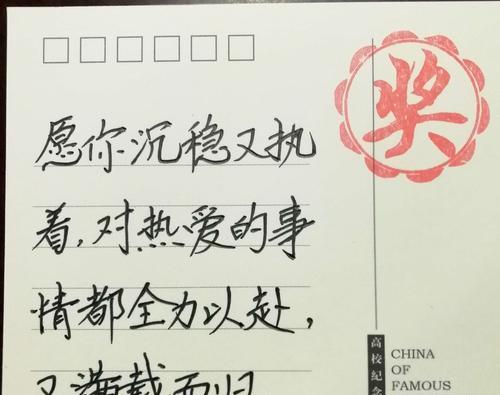 愿你沉稳又执
着,对热爱的事
情都全力以赴,
又满载而归
奖
高校纪念
CHINA
OF
FAMOUS